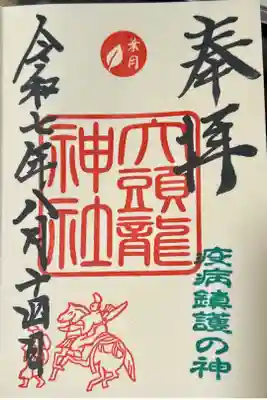 奉拝
葉月
六頭龍
神社
疫病鎮護の神
令和七年八月十四日